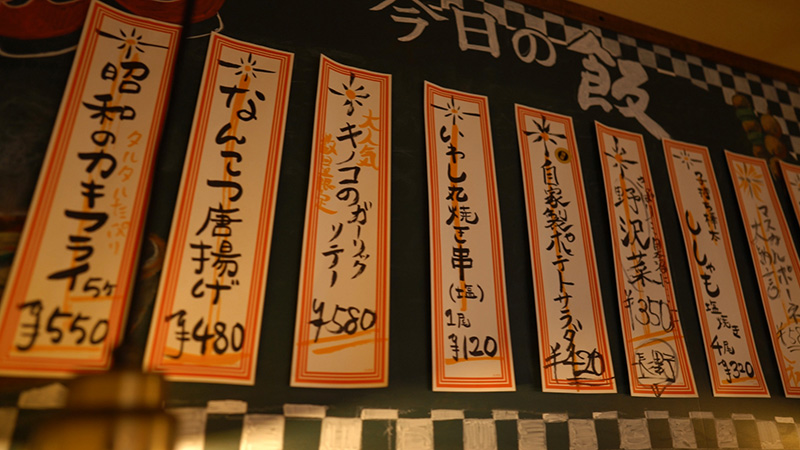 今日の飯
昭和のカキフライ
タルタル手造り
5ケ
¥550
なんこつ唐揚げ
¥480
大人気
数量限定
キノコのガーリック
ソテー
¥580
いわし丸焼き串
(塩)
1尾
¥120
自家製ポテトサラダ
野沢菜
¥350
長野
子持ち樺太
ししゃも
塩焼き
4尾
¥320
マスカルポーネ